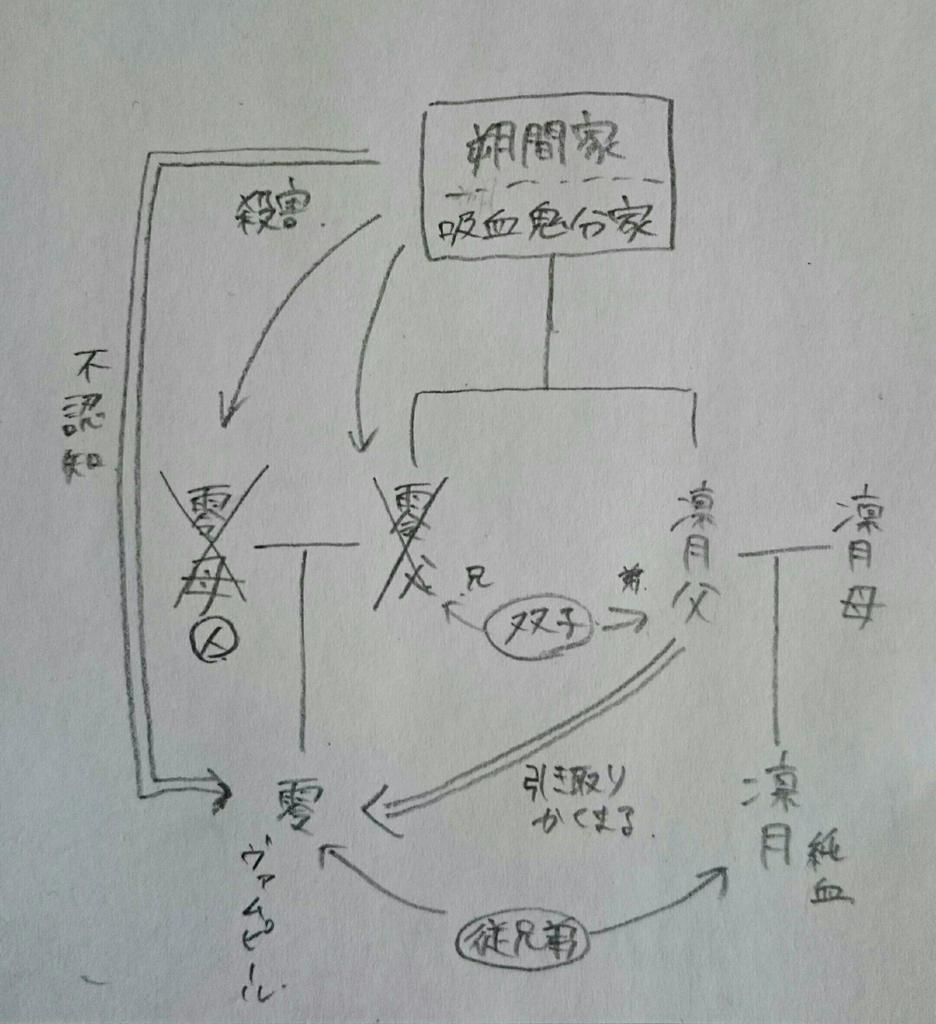 朔間家
吸血鬼分家
殺害.
不認知
零母
人
零父
兄
双子
弟.
凛月父
凛月母
引き取り
かくまる.
零
ヴァムピール.
凛月
純血
従兄弟